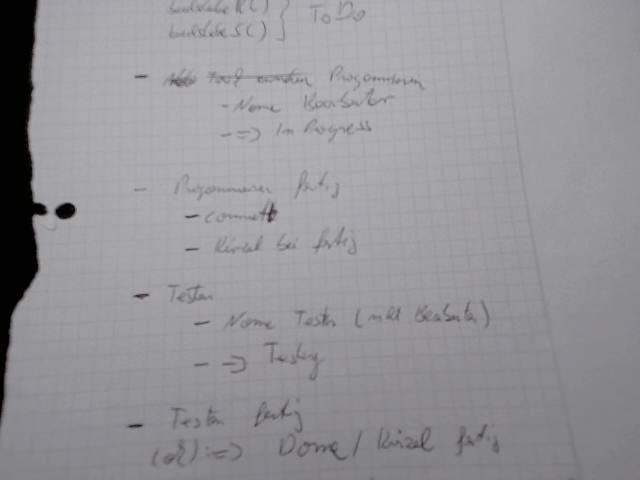 } ToDo
- Programmieren
- Name Bearbeiter
- => In Progress
- Programmieren fertig
- commit
- Kürzel bei fertig
- Testen
- Name Tester (nicht Bearbeiter)
- => Testing
- Testen fertig
(ok) => Done / Kürzel fertig